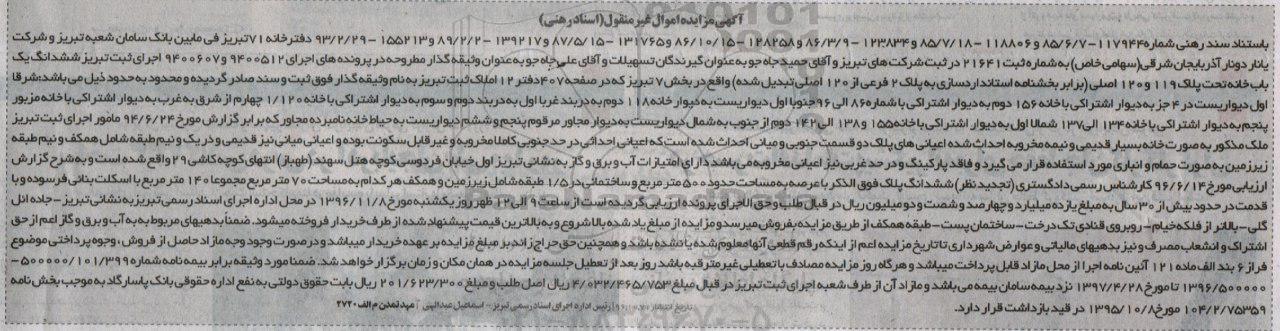 آگهی مزایده اموال غیر منقول (اسناد رهنی)
باستناد سند رهنی شماره ۱۱۷۹۴۴-۸۵/۶/۷ و ۱۱۸۸۰۶-۸۵/۷/۱۸ و ۱۲۳۸۳۴-۸۶/۳/۹ و ۱۲۸۲۵۸-۸۶/۱۰/۱۵ و ۱۳۱۷۶۵-۸۷/۵/۱۵ و ۱۳۹۲۱۷-۸۹/۲/۲ و ۱۵۵۲۱۳-۹۳/۲/۲۹ دفترخانه ۷۱ تبریز فی مابین بانک سامان شعبه تبریز و شرکت
یانار دونار آذربایجان شرقی (سهامی خاص) به شماره ثبت ۲۱۶۴۱ در ثبت شرکت های تبریز و آقای حمید جاه جو به عنوان گیرندگان تسهیلات و آقای علی جاه جو به عنوان وثیقه گذار مطروحه در پرونده های اجرای ۹۴۰۰۵۱۲ و ۹۴۰۰۶۰۷ اجرای ثبت تبریز ششدانگ یک
باب خانه تحت پلاک ۱۱۹ و ۱۲۰ اصلی (برابر بخشنامه استانداردسازی به پلاک ۲ فرعی از ۱۲۰ اصلی تبدیل شده) واقع در بخش ۷ تبریز که در صفحه ۴۰۷ دفتر ۱۲ املاک ثبت تبریز به نام وثیقه گذار فوق ثبت و سند صادر گردیده و محدود به حدود ذیل می باشد: شرقا
اول دیواریست در ۴ جز به دیوار اشتراکی با خانه ۱۵۶ دوم به دیوار اشتراکی با شماره ۸۶ الی ۹۶ جنوبا اول دیواریست به دیوار خانه ۱۱۸ دوم به دربند غربا اول به دربند دوم و سوم به دیوار اشتراکی با خانه ۱/۱۲۰ چهارم از شرق به غرب به دیوار اشتراکی با خانه مزبور
پنجم به دیوار اشتراکی با خانه ۱۳۴ الی ۱۳۷ شمالا اول به دیوار اشتراکی با خانه ۱۵۵ و ۱۳۸ الی ۱۴۲ دوم از جنوب به شمال دیواریست به دیوار مجاور مرقوم پنجم و ششم دیواریست به حیاط خانه نامبرده مجاور که برابر گزارش مورخ ۹۴/۶/۲۴ مامور اجرای ثبت تبریز
ملک مذکور به صورت خانه بسیار قدیمی و نیمه مخروبه احداث شده اعیانی های پلاک دو قسمت جنوبی و میانی احداث شده است که اعیانی احداثی در حد جنوبی کاملا مخروبه و غیر قابل سکونت بوده و اعیانی میانی نیز قدیمی و در یک و نیم طبقه شامل همکف و نیم طبقه
زیرزمین به صورت حمام و انباری مورد استفاده قرار می گیرد و فاقد پارکینگ و در حد غربی نیز اعیانی مخروبه می باشد دارای امتیازات آب و برق و گاز به نشانی تبریز اول خیابان فردوسی کوچه هتل سهند (طهباز) انتهای کوچه کاشی ۲۹ واقع شده است و به شرح گزارش
ارزیابی مورخ ۹۶/۶/۱۴ کارشناس رسمی دادگستری (تجدید نظر) ششدانگ پلاک فوق الذکر با عرصه به مساحت حدود ۵۰۰ متر مربع و ساختمانی در ۱/۵ طبقه شامل زیرزمین و همکف هر کدام به مساحت ۷۰ متر مربع مجموعا ۱۴۰ متر مربع با اسکلت بنائی فرسوده و با
قدمت در حدود بیش از ۳۰ سال به مبلغ یازده میلیارد و چهارصد و شصت و دو میلیون ریال در قبال طلب و حق الاجرای پرونده ارزیابی گردیده است از ساعت ۹ الی ۱۲ ظهر روز یکشنبه مورخ ۱۳۹۶/۱۱/۸ در محل اداره اجرای اسناد رسمی تبریز به نشانی تبریز - جاده ائل
گلی - بالاتر از فلکه خیام - روبروی قنادی تک درخت - ساختمان پست - طبقه همکف از طریق مزایده بفروش میرسد و مزایده از مبلغ یاد شده بالا شروع و به بالاترین قیمت پیشنهاد شده از طرف خریدار فروخته میشود. ضمناً بدهیهای مربوط به به آب و برق و گاز اعم از حق
اشتراک و انشعاب مصرف و نیز بدهیهای مالیاتی و عوارض شهرداری تا تاریخ مزایده اعم از اینکه رقم قطعی آنها معلوم شده یا نشده باشد و همچنین حق حراج زاند بر مبلغ مزایده بر عهده خریدار میباشد و در صورت وجود وجه مازاد حاصل از فروش، وجوه پرداختی موضوع
فراز ۶ بند الف ماده ۱۲۱ آئین نامه اجرا از محل مازاد قابل پرداخت میباشد و هرگاه روز مزایده مصادف با تعطیلی غیر مترقبه باشد روز بعد از تعطیل جلسه مزایده در همان مکان و زمان برگزار خواهد شد. ضمنا مورد وثیقه برابر بیمه نامه شماره ۱۰۱/۳۹۹/۵۰۰۰۰۰-
۱۳۹۶/۵۰۰۰۰۰ تا مورخ ۱۳۹۷/۴/۲۸ نزد بیمه سامان بیمه می باشد و مازاد آن از طرف شعبه اجرای ثبت تبریز در قبال مبلغ ۴/۰۳۲/۴۶۵/۷۵۳ ریال اصل طلب و مبلغ ۲۰۱/۶۲۳/۳۰۰ ریال بابت حقوق دولتی به نفع اداره حقوقی بانک پاسارگاد به موجب بخش نامه
۱۰۴/۲/۷۵۳۵۹ مورخ ۱۳۹۵/۱۰/۸ در قید بازداشت قرار دارد.
رئیس اداره اجرای اسناد رسمی تبریز - اسماعیل عبدالهی مهد تمدن م الف ۲۷۲۰